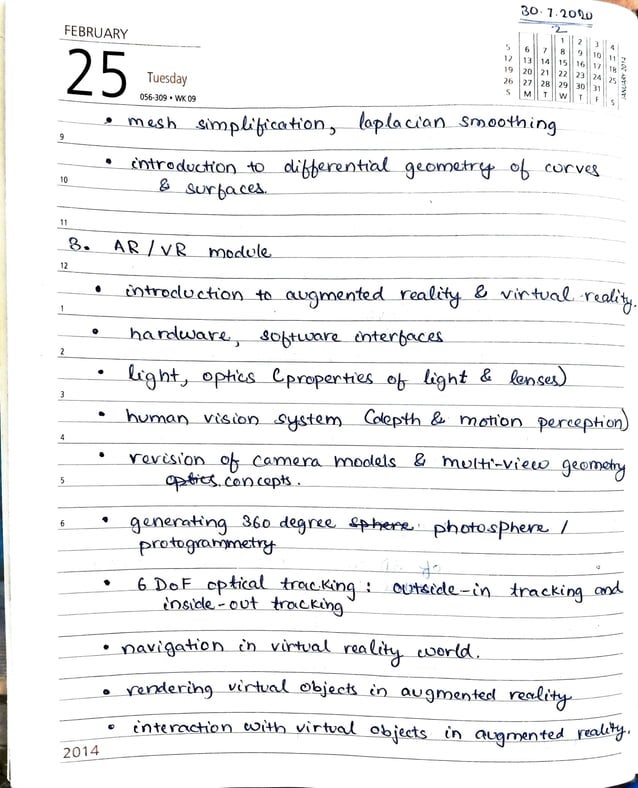 30.7.2020
FEBRUARY
25 Tuesday
056-309 • WK 09
2
1 2 3 4
5 6 7 8 9 10 11
12 13 14 15 16 17 18
19 20 21 22 23 24 25
26 27 28 29 30 31
S M T W T F S
• mesh simplification, laplacian smoothing
9
• introduction to differential geometry of curves
10
& surfaces.
11
B. AR/VR module
12
• introduction to augmented reality & virtual reality.
1
• hardware, software interfaces
2
• light, optics (properties of light & lenses)
3
• human vision system (depth & motion perception)
4
• revision of camera models & multi-view geometry
5
optics. concepts.
6
• generating 360 degree sphere photosphere /
protogrammetry
• 6 DoF optical tracking : outside-in tracking and
inside-out tracking
• navigation in virtual reality world.
• rendering virtual objects in augmented reality
• interaction with virtual objects in augmented reality.
2014